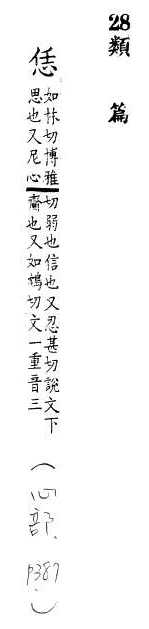 28 類篇
恁
如林切博雅
思也又尼心
切弱也信也又忍甚切說文下
齎也又如鴆切文一重音三
(心部. p387.)